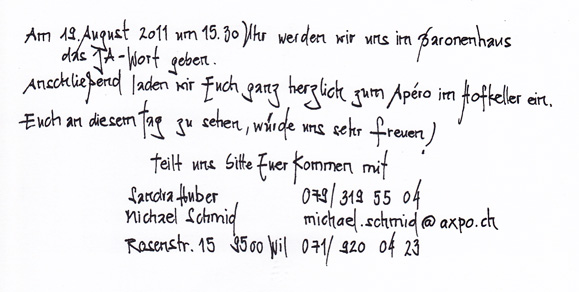 Am 19. August 2011 um 15.30 Uhr werden wir uns im Baronenhaus
das JA-Wort geben.
Anschließend laden wir Euch ganz herzlich zum Apéro im Hofkeller ein.
Euch an diesem Tag zu sehen, würde uns sehr freuen!
Teilt uns bitte Euer Kommen mit
Sandra Huber 079/319 55 04
Michael Schmid michael.schmid@axpo.ch
Rosenstr. 15 9500 Wil 071/920 04 23